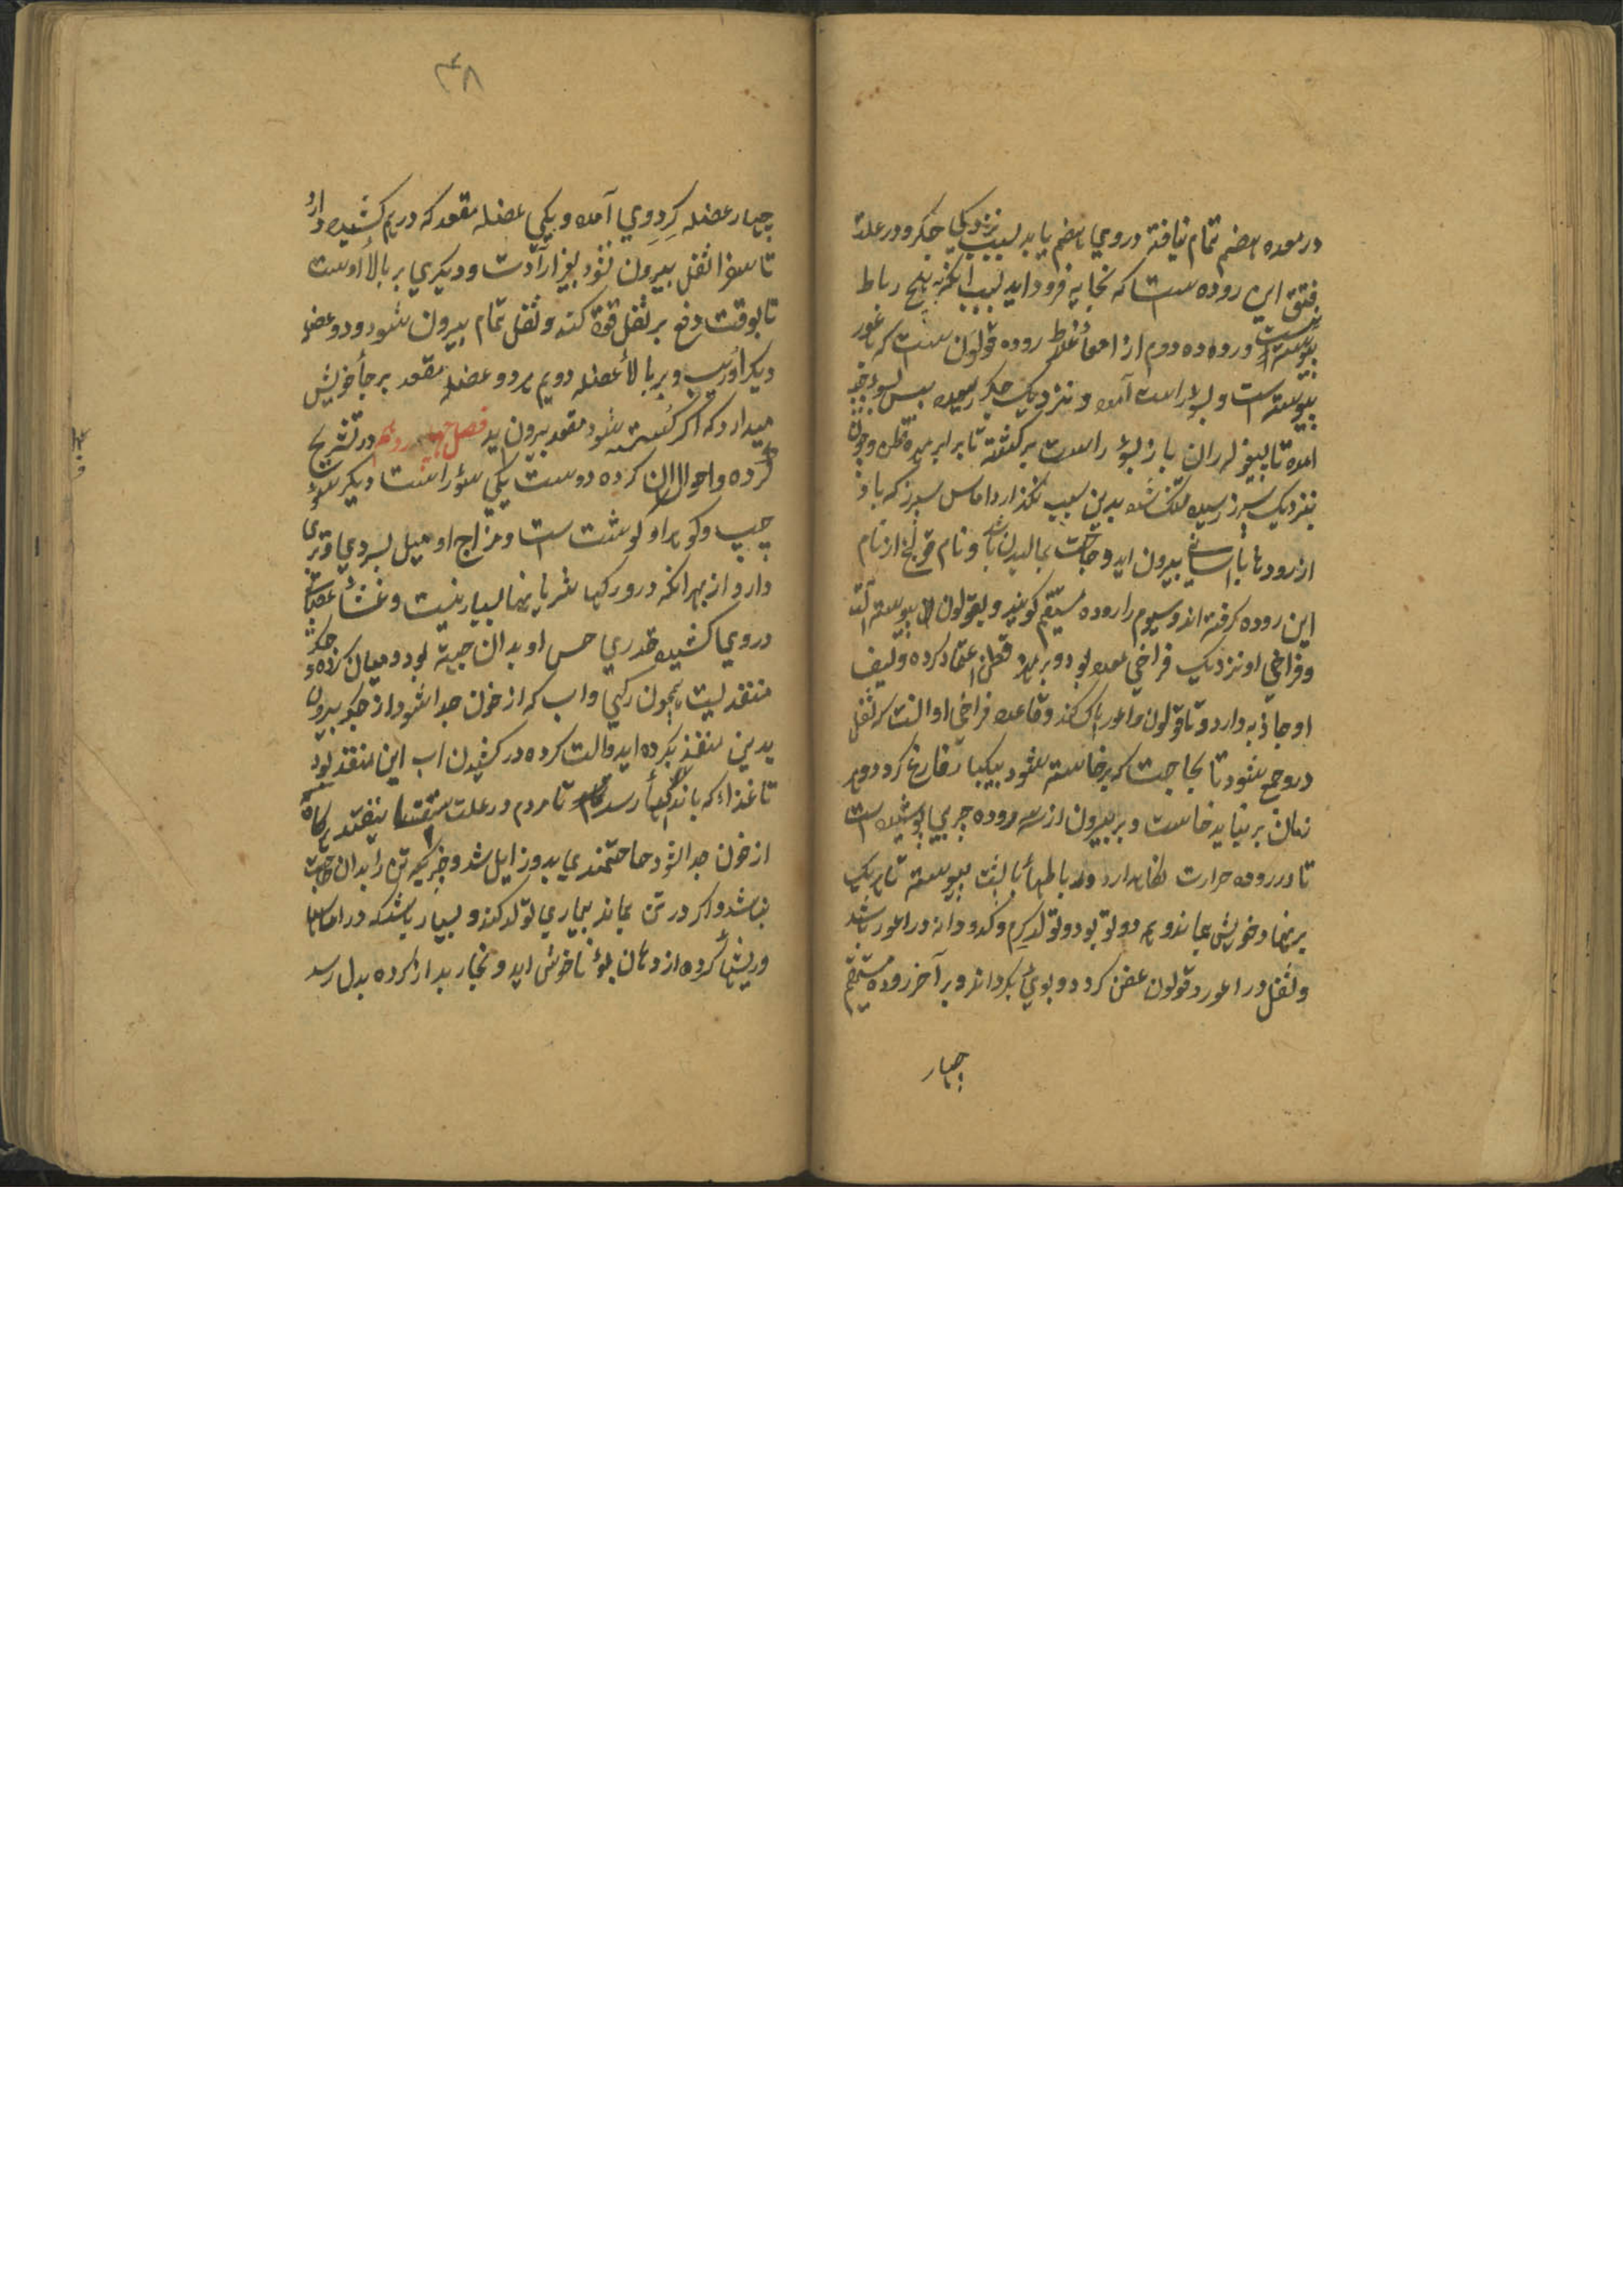 در معده هضم تمام نیافته در وي هضم یابد بسبب نزدیکی جکر و در علة
فتق این روده است که بخایه فرود اید بسبب انکه به هیچ رباط
پیوسته نیست و روده دوم از امعأ غلاظ روده قولون است که باعور
پیوسته است و بسؤ راست آمده و نزدیک جکر رسیده پس بسوء چپ
امده تا بیغوله ران باز بسؤ راست برکشته تا برابر مهره قطن و چون
بنزدیک سپرز رسیده تنک شده بدین سبب نکذارد اماس سپرز که باد
از رودها باسانی بیرون اید و حاجت بمالیدن باشد و نام قولنج از نام
این روده کرفته اند و سیوم را روده مستقیم کویند و بقولون پیوسته است
و فراخي او نزدیک فراخي معده بود و بر مهره قطن اعتماد کرده و لیف
او جاذبه دارد و تا قولون و اعور پاک کند و قاعده فراخي او انست که ثفل
در وجمع شود تا بحاجت که برخاسته شود بیکبار فارغ کردد و هر
زمان برنباید خاست و بر بیرون از سه روده چربي پوشیده است
تا در روده حرارت نکاهدارد و رباطهأ با پشت پیوسته تا هر یک
بر نهاد خویش بماند و همه دو تو بود و تولد کرم و کدو دانه در اعور باشد
و ثفل در اعور و قولون عفن کردد و بوي بکرداند و بر آخر روده مستقیم
چهار
۴۸
چهار عضله کرد وي آمده و یکي عضله مقعد که در هم کشیده دارد
تا هرا ثفل بیرون نشود بغیر ارادت و دیکري بر بالأ اوست
تا بوقت دفع بر ثفل قوة کند و ثفل تمام بیرون شود و دو عضله
دیکر اوریب و بر بالأ عضله دویم هر دو عضله مقعد بر جأ خویش
میدارد که اکر کسسته شود مقعد بیرون اید فصل در تشریح
کرده و احوال ان کرده دوست یکي سؤ راست دیکر سوء
چپ و کوهر او کوشت است و مزاج او میل بسردي و تري
دارد از بهر انکه در و رکها شریانها بسیار نیست و غشاء عصباني
در وي کشیده قدري حس او بدان جهة بود و میان کرده و جکر
منفذیست همچون رکي و اب که از خون جدا شود از جکر بیرون
بدین منفذ بکرده اید و الت کرده در کشیدن اب این منفذ بود
تا غذاء که باندامهأ رسد تا مردم در علت استسقا نیفتد هرکاه
از خون جدا شود حاجتمندي بدو زایل شد و هیچ تن را بدان حاجت
نباشد و اکر در تن بماند بیماري تولد کند و بسیار باشد که در اماسها
و ریشهأ کرده از دهان بوء ناخوش اید و بخار بد از کرده بدل رسد